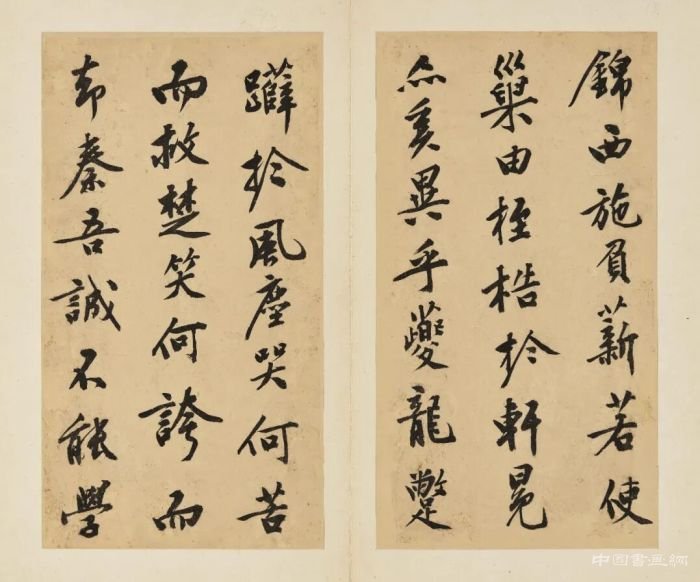 錦西施負薪若使
巢由桎梏於軒冕
亦奚異乎夔龍蹩
躠於風塵哭何苦
而救楚笑何誇而
却秦吾誠不能學
中国書画網